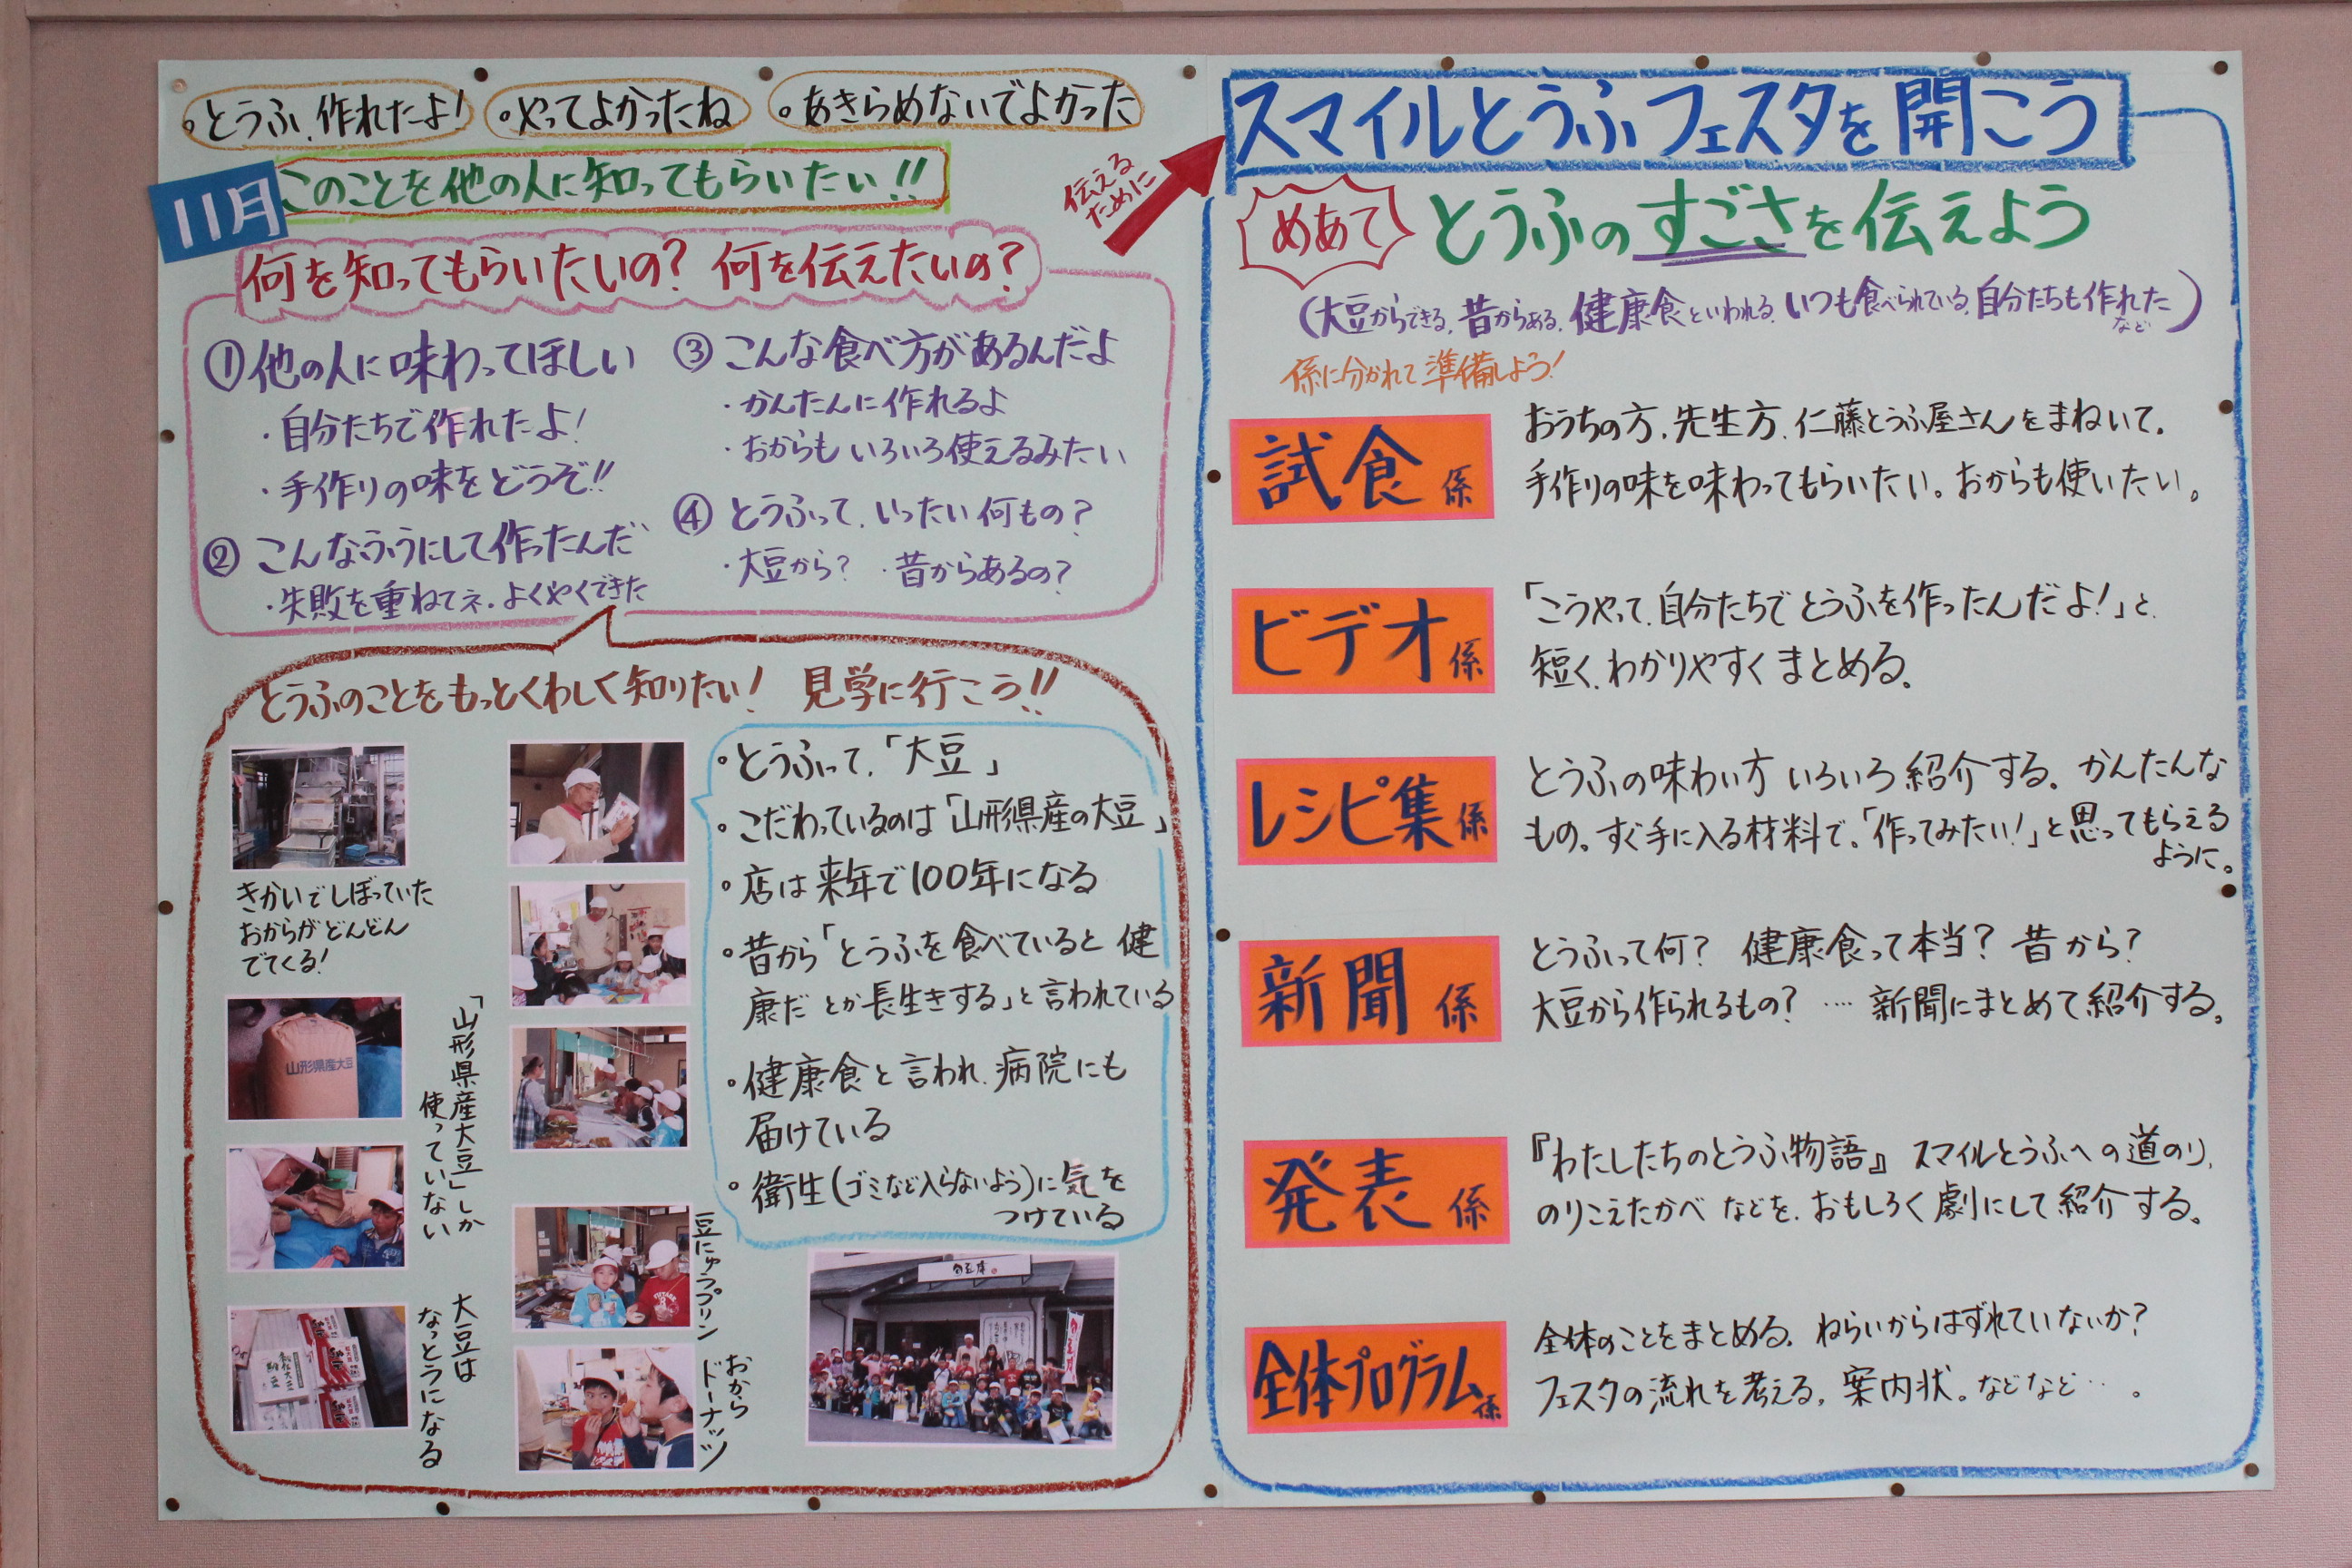 。とうふ、作れたよ！
。やってよかったね
。あきらめないでよかった
11月
このことを他の人に知ってもらいたい！！
何を知ってもらいたいの？ 何を伝えたいの？
①他の人に味わってほしい
・自分たちで作れたよ！
・手作りの味をどうぞ！！
②こんなふうにして作ったんだ
・失敗を重ねてネ・よくやくできた
③こんな食べ方があるんだよ
・かんたんに作れるよ
・おからもいろいろ使えるみたい
④とうふって、いったい何もの？
・大豆から？ ・昔からあるの？
とうふのことをもっとくわしく知りたい！ 見学に行こう！！
きかいでしぼっていた
おからがどんどん
でてくる！
山形県産大豆
「山形県産大豆」しか
使っていない
大豆は
なっとうになる
豆にゅうプリン
おから
ドーナッツ
。とうふって、「大豆」
。こだわっているのは「山形県産の大豆」
。店は来年で100年になる
。昔から「とうふを食べていると健
康だ とか長生きする」と言われている
。健康食と言われ、病院にも
届けている
。衛生（ゴミなど入らないよう）に気を
つけている
伝える
ために
スマイルとうふフェスタを開こう
めあて
とうふのすごさを伝えよう
（大豆からできる、昔からある、健康食といわれる、いつも食べられている、自分たちも作れた
など）
係に分かれて準備しよう！
試食係
おうちの方、先生方、仁藤とうふ屋さんをまねいて。
手作りの味を味わってもらいたい。おからも使いたい。
ビデオ係
「こうやって、自分たちでとうふを作ったんだよ！」と、
短く、わかりやすくまとめる。
レシピ集係
とうふの味わい方いろいろ紹介する。かんたんな
もの。すぐ手に入る材料で。「作ってみたい！」と思ってもらえる
ように。
新聞係
とうふって何？ 健康食って本当？ 昔から？
大豆から作られるもの？ ‥‥ 新聞にまとめて紹介する。
発表係
『わたしたちのとうふ物語』 スマイルとうふへの道のり、
のりこえたかべ などを、おもしろく劇にして紹介する。
全体プログラム係
全体のことをまとめる。ねらいからはずれていないか？
フェスタの流れを考える。案内状。などなど‥。